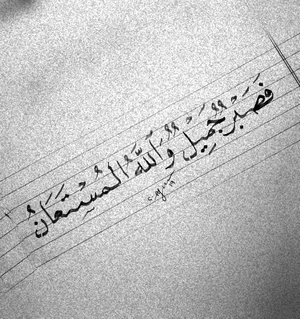 فَصَبْرٌ جَمِيْلٌ وَاللّٰهُ الْمُسْتَعَانُ